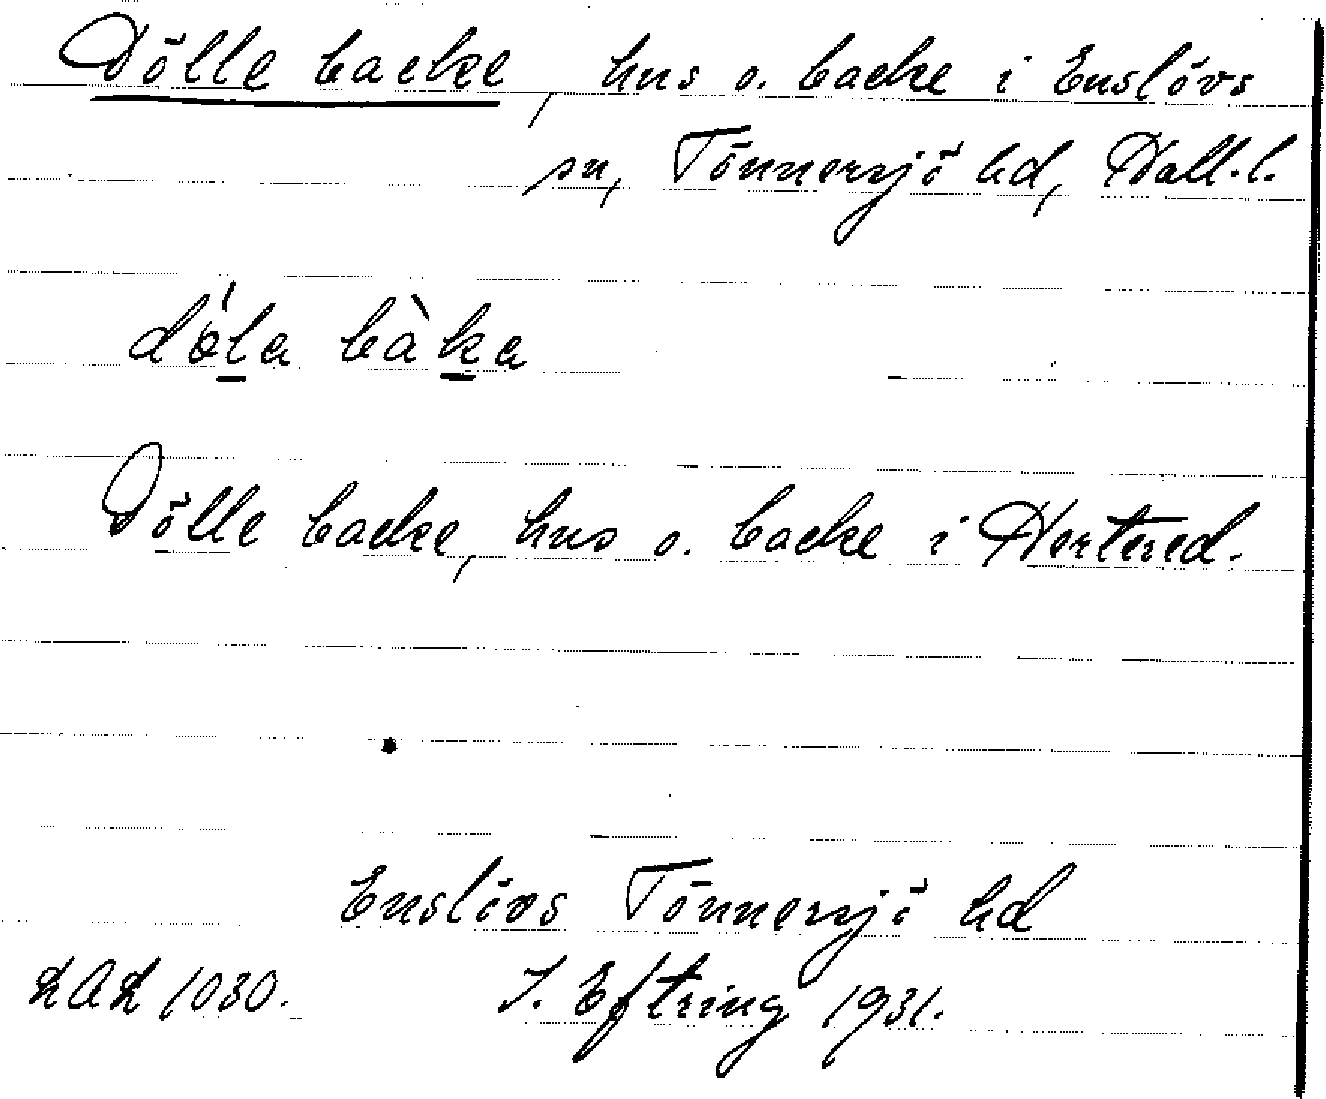 Dölle backe, hus o. backe i Enslövs
sn, Tönnersjö hd, Hall.l.
dö́la bàka
Dölle backe, hus o. backe i Hertered.
Enslövs Tönnersjö hd
LAL 1030. J. Eftring 1931.